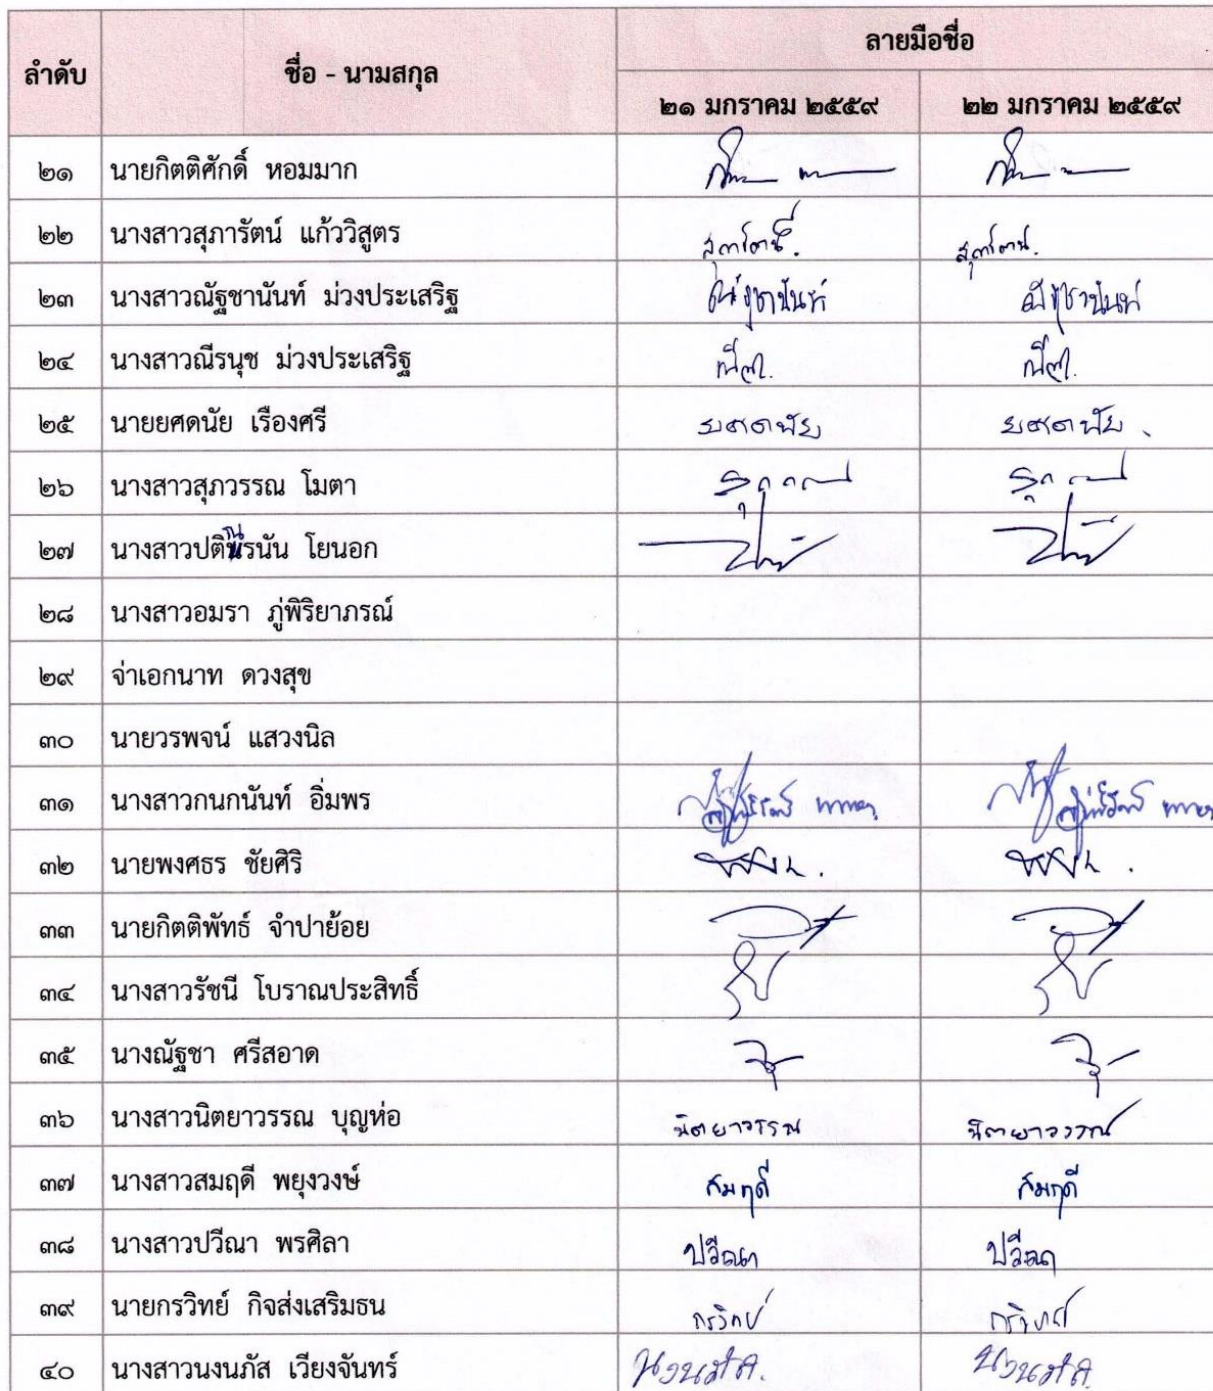 ลำดับ ชื่อ - นามสกุล ลายมือชื่อ
๒๑ มกราคม ๒๕๕๙ ๒๒ มกราคม ๒๕๕๙
๒๑ นายกิตติศักดิ์ หอมมาก
๒๒ นางสาวสุภารัตน์ แก้ววิสูตร สุภารัตน์. สุภารัตน์.
๒๓ นางสาวณัฐชานันท์ ม่วงประเสริฐ ณัฐชานันท์ ณัฐชานันท์
๒๔ นางสาวณีรนุช ม่วงประเสริฐ
๒๕ นายยศดนัย เรืองศรี ยศดนัย ยศดนัย
๒๖ นางสาวสุภวรรณ โมตา
๒๗ โยนอก
๒๘ นางสาวอมรา ภู่พิริยาภรณ์
๒๙ จ่าเอกนาท ดวงสุข
๓๐ นายวรพจน์ แสวงนิล
๓๑ นางสาวกนกนันท์ อิ่มพร
๓๒ นายพงศธร ชัยศิริ
๓๓ นายกิตติพัทธ์ จำปาย้อย
๓๔ นางสาวรัชนี โบราณประสิทธิ์
๓๕ นางณัฐชา ศรีสอาด
๓๖ นางสาวนิตยาวรรณ บุญห่อ นิตยาวรรณ นิตยาวรรณ
๓๗ นางสาวสมฤดี พยุงวงษ์ สมฤดี สมฤดี
๓๘ นางสาวปวีณา พรศิลา ปวีณา ปวีณา
๓๙ นายกรวิทย์ กิจส่งเสริมธน กรวิทย์ กรวิทย์
๔๐ นางสาวนงนภัส เวียงจันทร์ นงนภัส. นงนภัส.